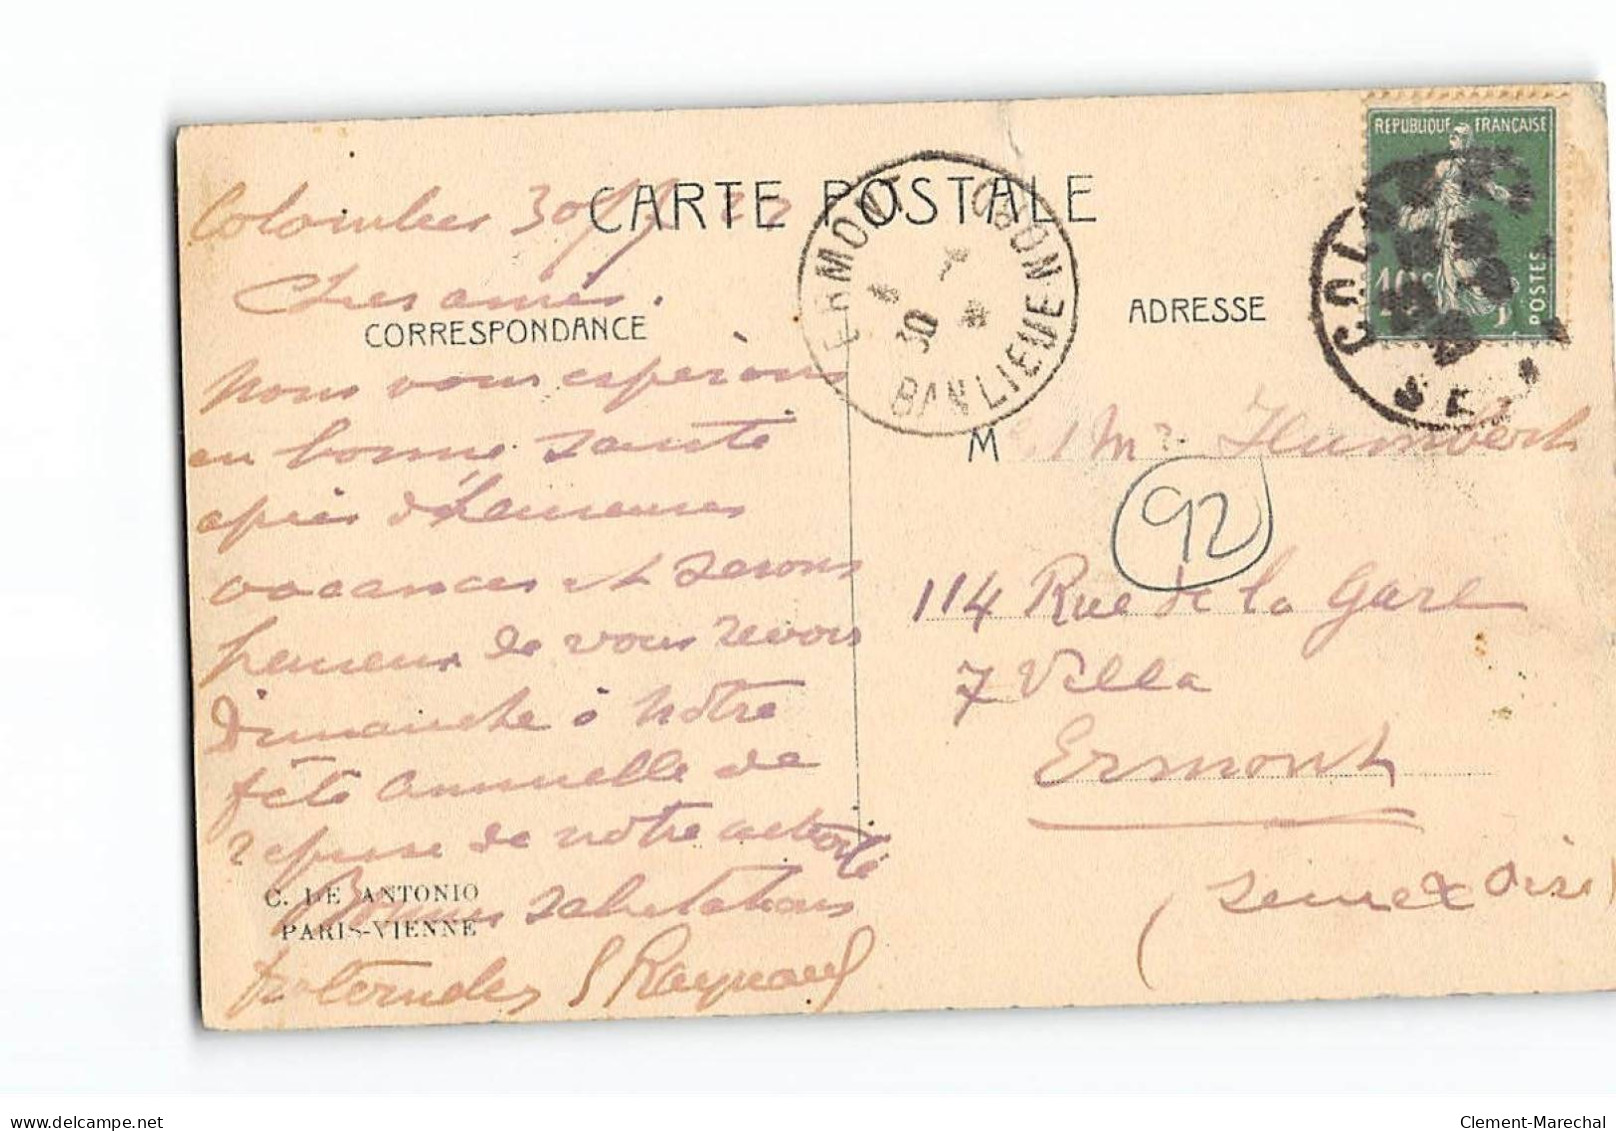 CARTE POSTALE
CORRESPONDANCE
ADRESSE
REPUBLIQUE FRANÇAISE
POSTES
10c
ERMONT
BANLIEUE
30
COLOMBES
Colombes 30 22
Chers amis.
Nous vous esperons
en bonne sante
après d'heureuses
vacances et serons
heureux de vous revoir
Dimanche à notre
fête annuelle de
reprise de notre activité
Bonnes salutations
fraternelles S Raynaud
C. LE ANTONIO
PARIS-VIENNE
M Mr Humbert
92
114 Rue de la Gare
7 Villa
Ermont
(Seine & Oise)
Clement-Marechal
delcampe.net